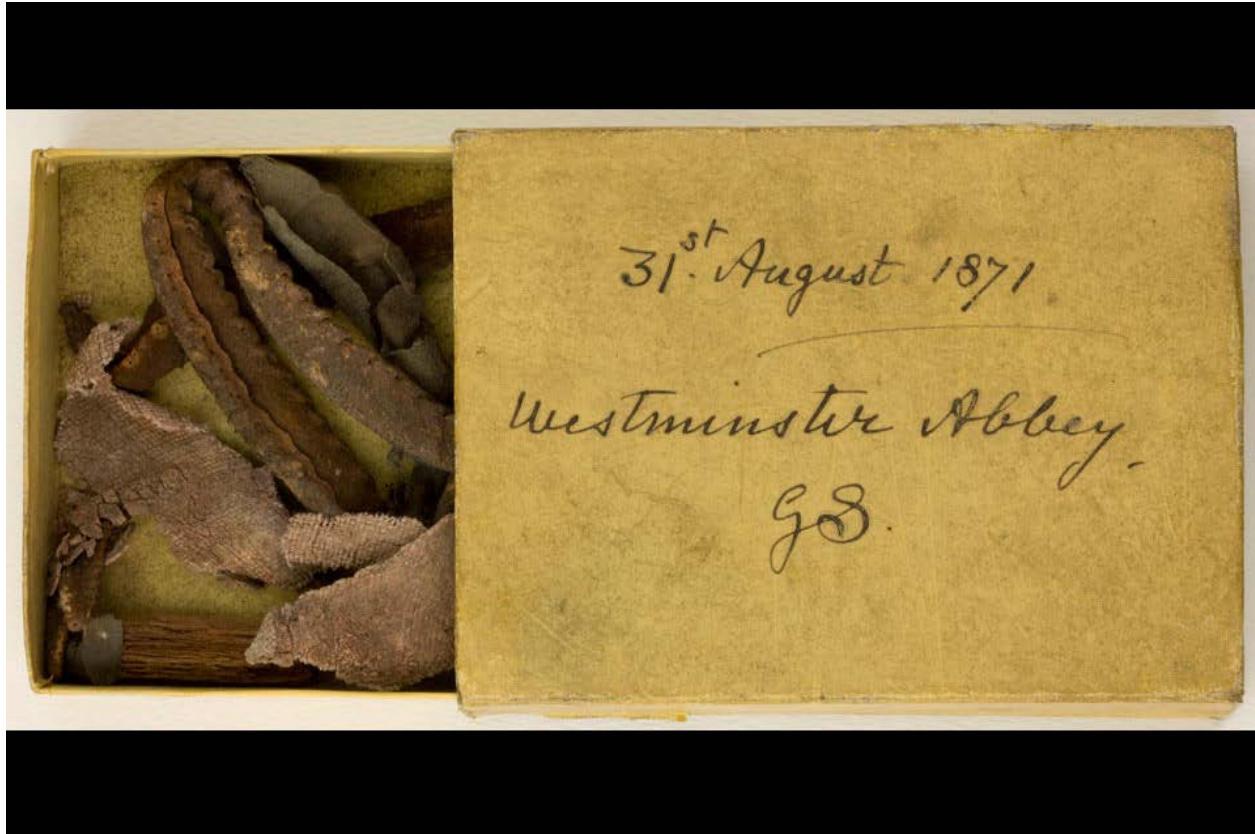 31st. August 1871
Westminster Abbey.
GS.